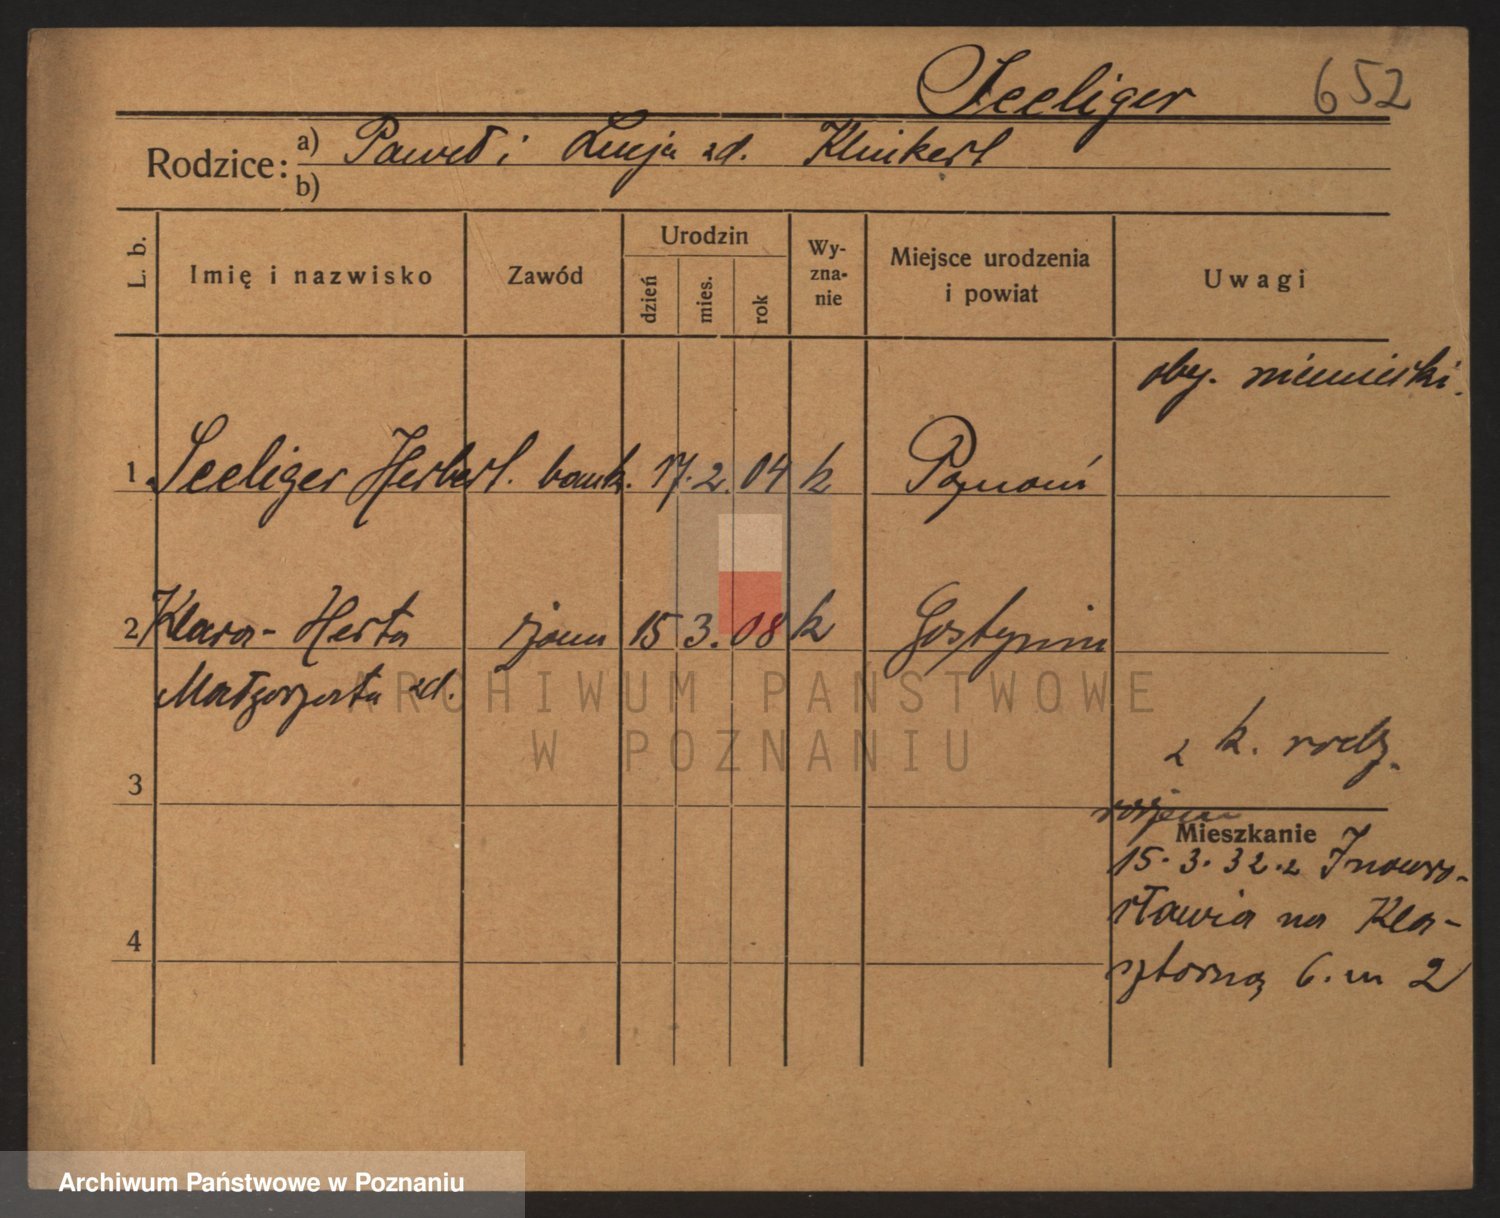 Seeliger 652
Rodzice: a) Paweł i Lucja zd. Klinkert
b)
L. b. Imię i nazwisko Zawód Urodzin dzień mies. rok Wy-zna-nie Miejsce urodzenia i powiat Uwagi
oby. niemiecki.
1. Seeliger Herbert. bank. 17. 2. 04 k Poznań
2 Klara - Herta żona 15 3. 08 k Gostynin
Małgorzata zd.
z k. rodz.
3
Mieszkanie
15. 3. 32. z Inowro-
cławia na Kla-
sztorną 6. m 2
4
ARCHIWUM PAŃSTWOWE
W POZNANIU
Archiwum Państwowe w Poznaniu